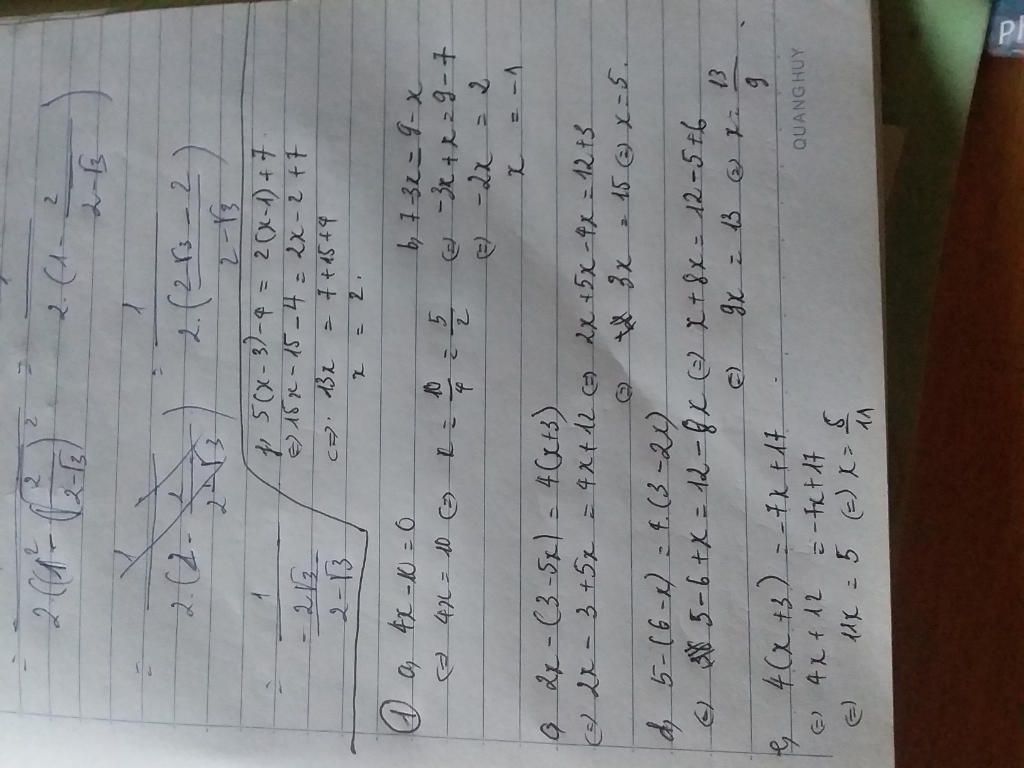 = 1 / 2((1)² - (√(2/(2-√3)))²) = 1 / 2.(1 - 2/(2-√3))
= 1 / 2.(2 - 2/(2-√3)) = 1 / 2.((2-√3-2)/(2-√3))
= 1 / (-2√3/(2-√3))
f, 5(x-3)-4 = 2(x-1)+7
⇔ 15x - 15 - 4 = 2x - 2 + 7
⇔ 13x = 7+15+4
x = 2.
① a, 4x-10=0
⇔ 4x = 10 ⇔ x = 10/4 = 5/2
b, 7-3x = 9-x
⇔ -3x + x = 9-7
⇔ -2x = 2
x = -1
c, 2x-(3-5x) = 4(x+3)
⇔ 2x-3+5x = 4x+12 ⇔ 2x+5x-4x = 12+3
⇔ 3x = 15 ⇔ x=5.
d, 5-(6-x) = 4.(3-2x)
⇔ 5-6+x = 12-8x ⇔ x+8x = 12-5+6
⇔ 9x = 13 ⇔ x = 13/9
e, 4(x+3) = -7x+17
⇔ 4x+12 = -7x+17
⇔ 11x = 5 ⇔ x = 5/11
QUANGHUY